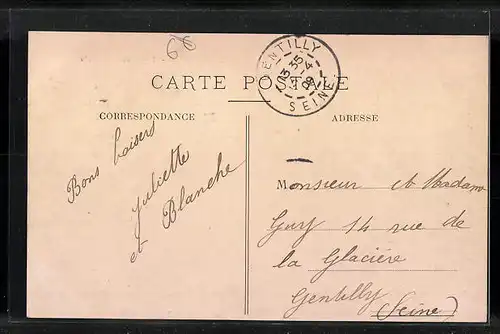 6€
GENTILLY
13 35
21-4
09
SEINE
CARTE POSTALE
CORRESPONDANCE
ADRESSE
Bons baisers
Juliette
et Blanche
Monsieur et Madame
Guy 14 rue de
la Glacière
Gentilly (Seine)